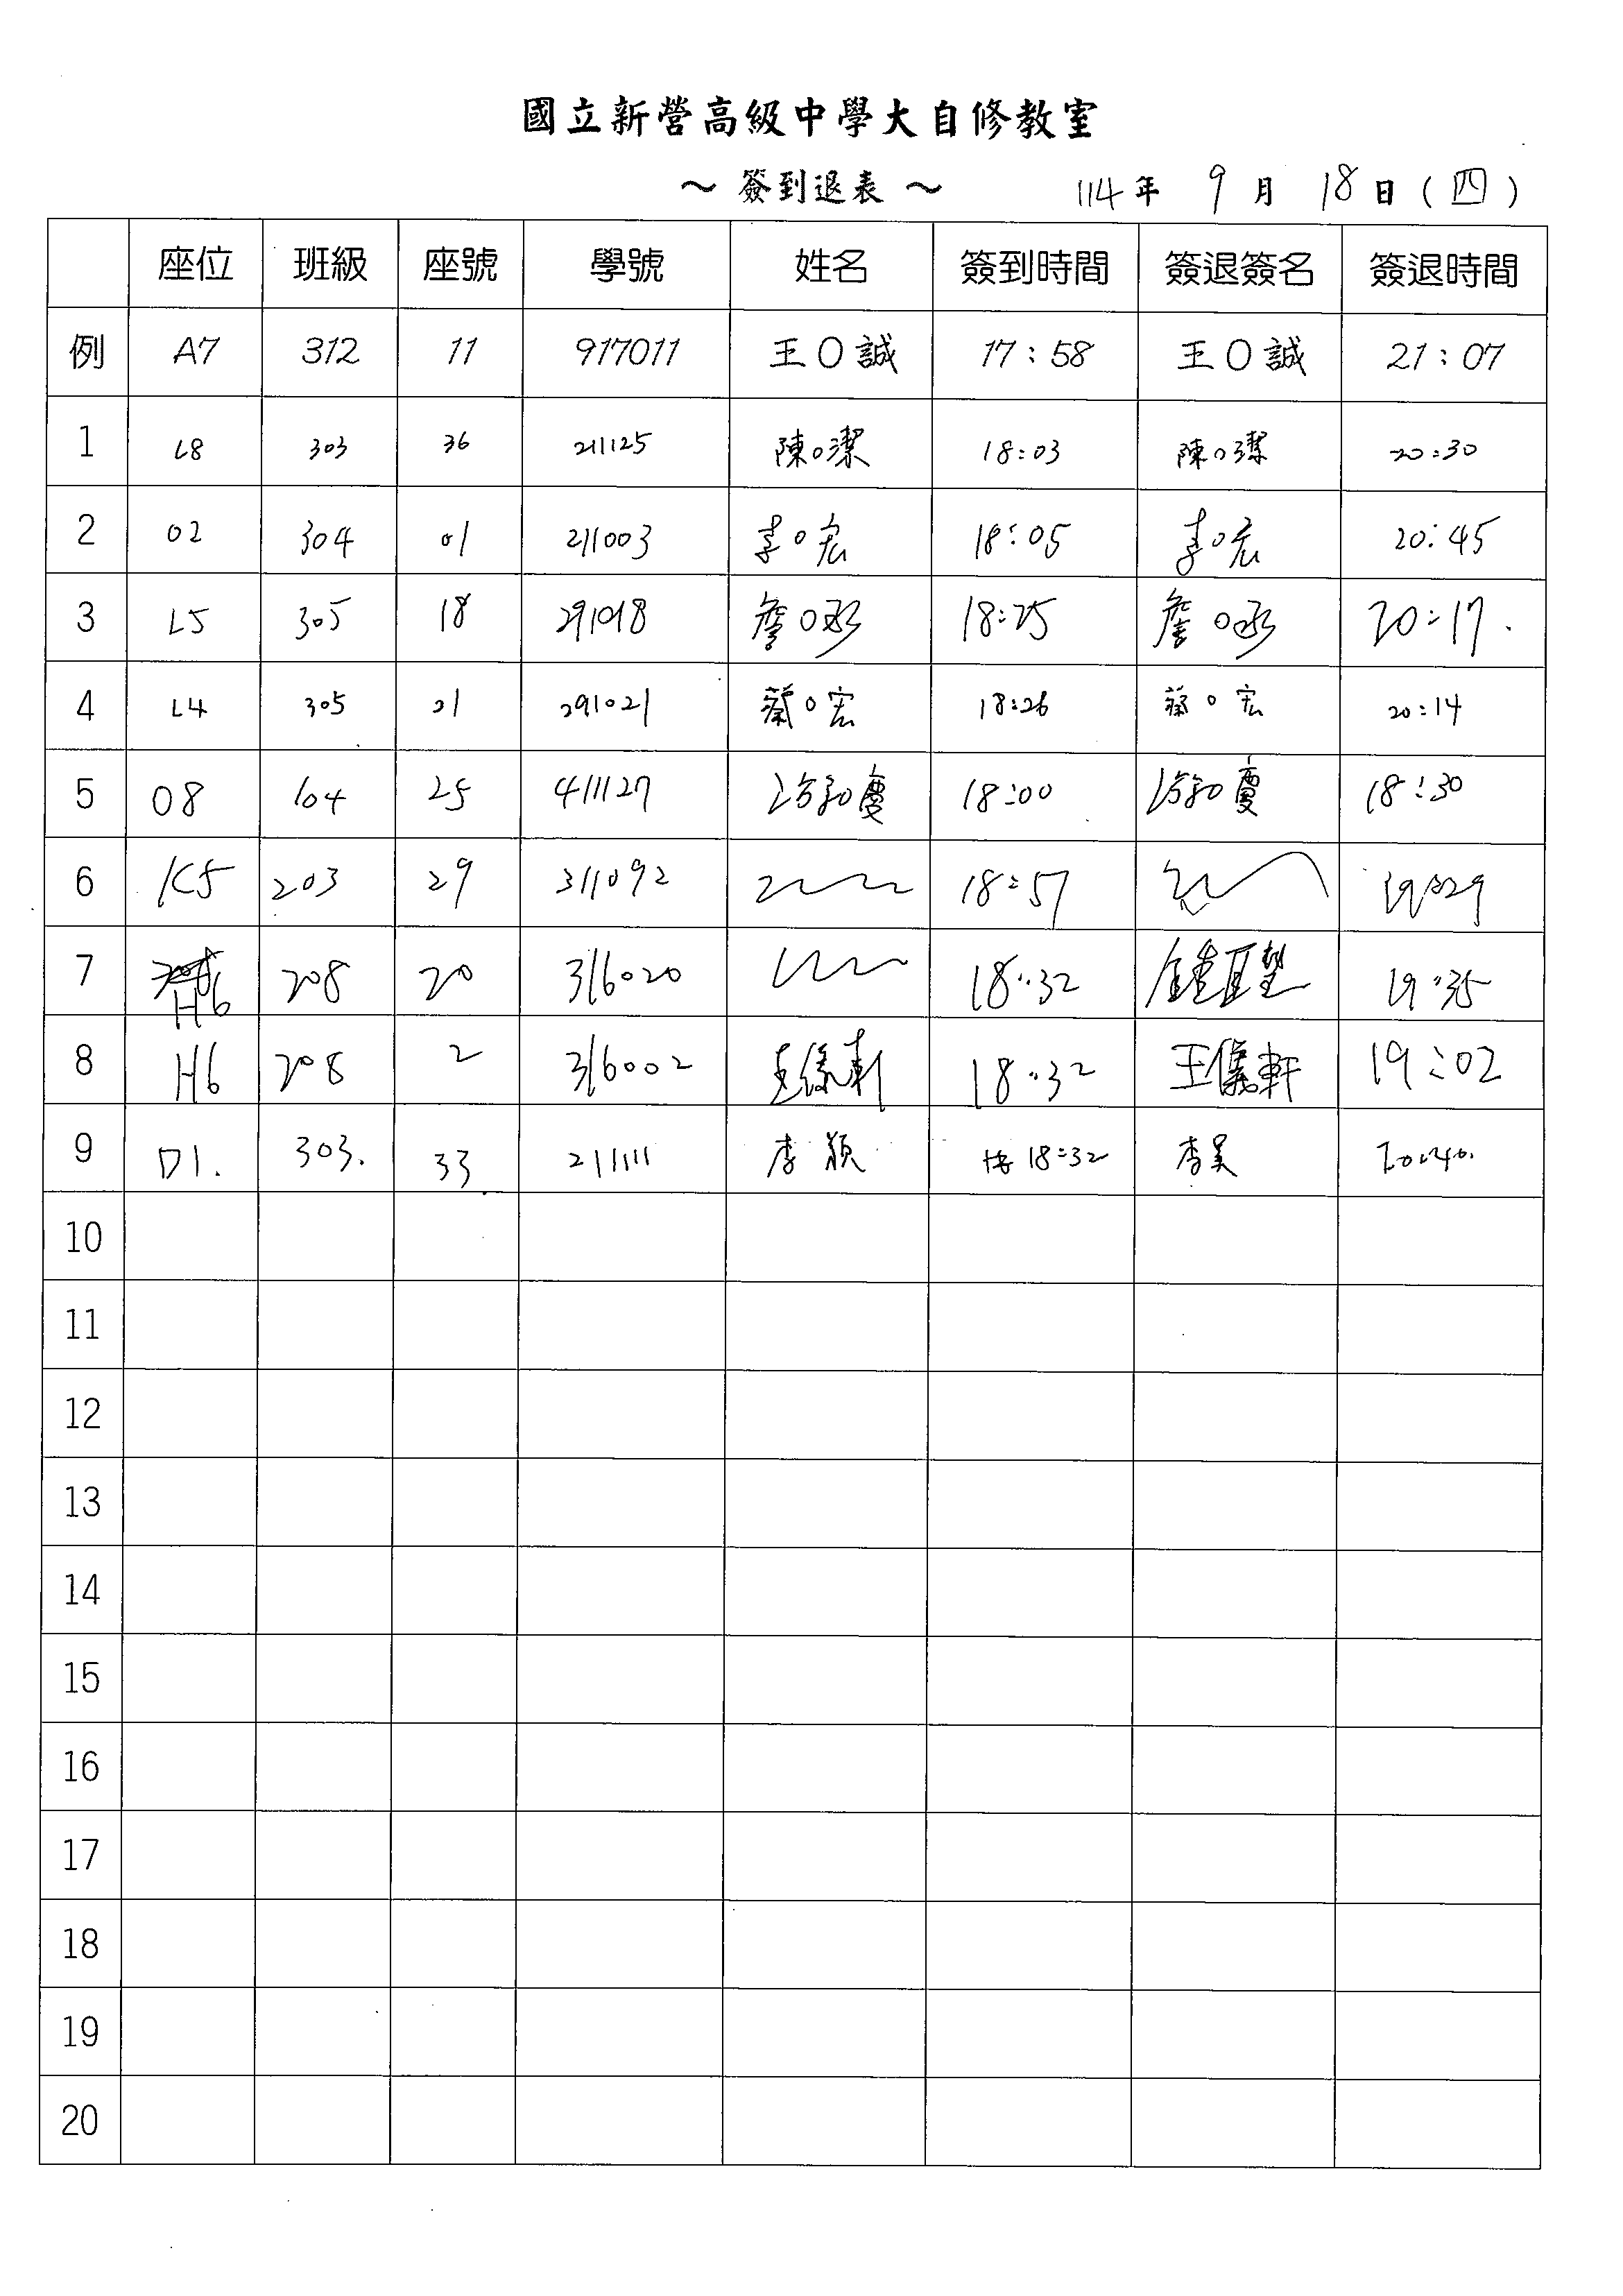 國立新營高級中學大自修教室
～ 簽到退表 ～ 114年 9月 18日(四)
座位 班級 座號 學號 姓名 簽到時間 簽退簽名 簽退時間
例 A7 312 11 917011 王O誠 17:58 王O誠 21:07
1 L8 303 36 211125 陳O潔 18:03 陳O潔 20:30
2 O2 304 01 211003 李O宏 18:05 李O宏 20:45
3 L5 305 18 291018 詹O丞 18:25 詹O丞 20:17.
4 L4 305 21 291021 蔡O宏 18:26 蔡O宏 20:14
5 O8 104 25 411127 18:00 18:30
6 K5 203 29 311092 18:57 19:29
7 H6 208 20 316020 18:32 19:35
8 H6 208 2 316002 18:32 王儀軒 19:02
9 D1. 303. 33 211111 李 穎 18:32 李 20:40.
10
11
12
13
14
15
16
17
18
19
20